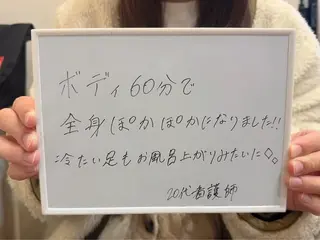 ボディ60分で
全身ぽかぽかになりました!!
冷たい足もお風呂上がりみたいに◇。
20代看護師